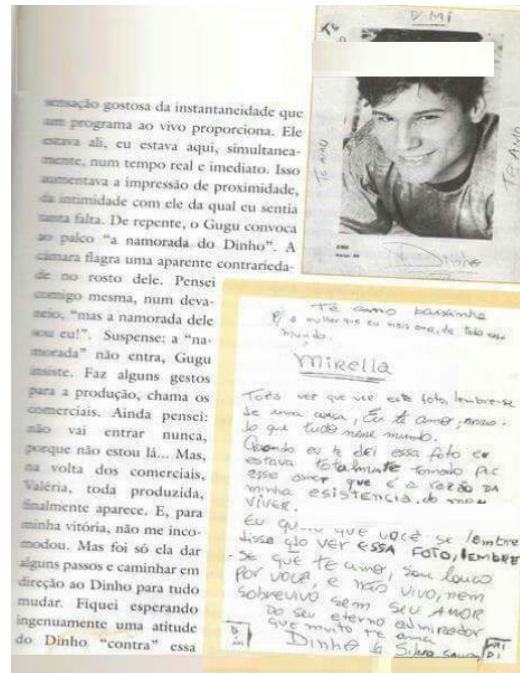 sensação gostosa da instantaneidade que
um programa ao vivo proporciona. Ele
estava ali, eu estava aqui, simultanea-
mente, num tempo real e imediato. Isso
aumentava a impressão de proximidade,
da intimidade com ele da qual eu sentia
tanta falta. De repente, o Gugu convoca
ao palco “a namorada do Dinho”. A
câmara flagra uma aparente contrarieda-
de no rosto dele. Pensei
comigo mesma, num deva-
neio, “mas a namorada dele
sou eu!”. Suspense: a “na-
morada” não entra, Gugu
insiste. Faz alguns gestos
para a produção, chama os
comerciais. Ainda pensei:
não vai entrar nunca,
porque não estou lá... Mas,
na volta dos comerciais,
Valéria, toda produzida,
finalmente aparece. E, para
minha vitória, não me inco-
modou. Mas foi só ela dar
alguns passos e caminhar em
direção ao Dinho para tudo
mudar. Fiquei esperando
ingenuamente uma atitude
do Dinho “contra” essa
P/ MI
TE
TE AMO
TE AMO
Dinho
Te amo baixinha
P/ a mulher que eu mais amo, de todo esse
mundo.
Mirella
Toda vez que ver esta foto lembre-se
de uma coisa, Eu te amo, mais
do que tudo nesse mundo.
Quando eu te dei essa foto eu
estava totalmente tomado por
esse amor que é a razão da
minha esistencia, do meu
viver.
Eu que você se lembre
disso ao ver essa foto, lembre
-se que te amo, sou louco
por você, e não vivo, nem
sobrevivo sem seu amor
Do seu eterno admirador
que muito te ama
Dinho Silva